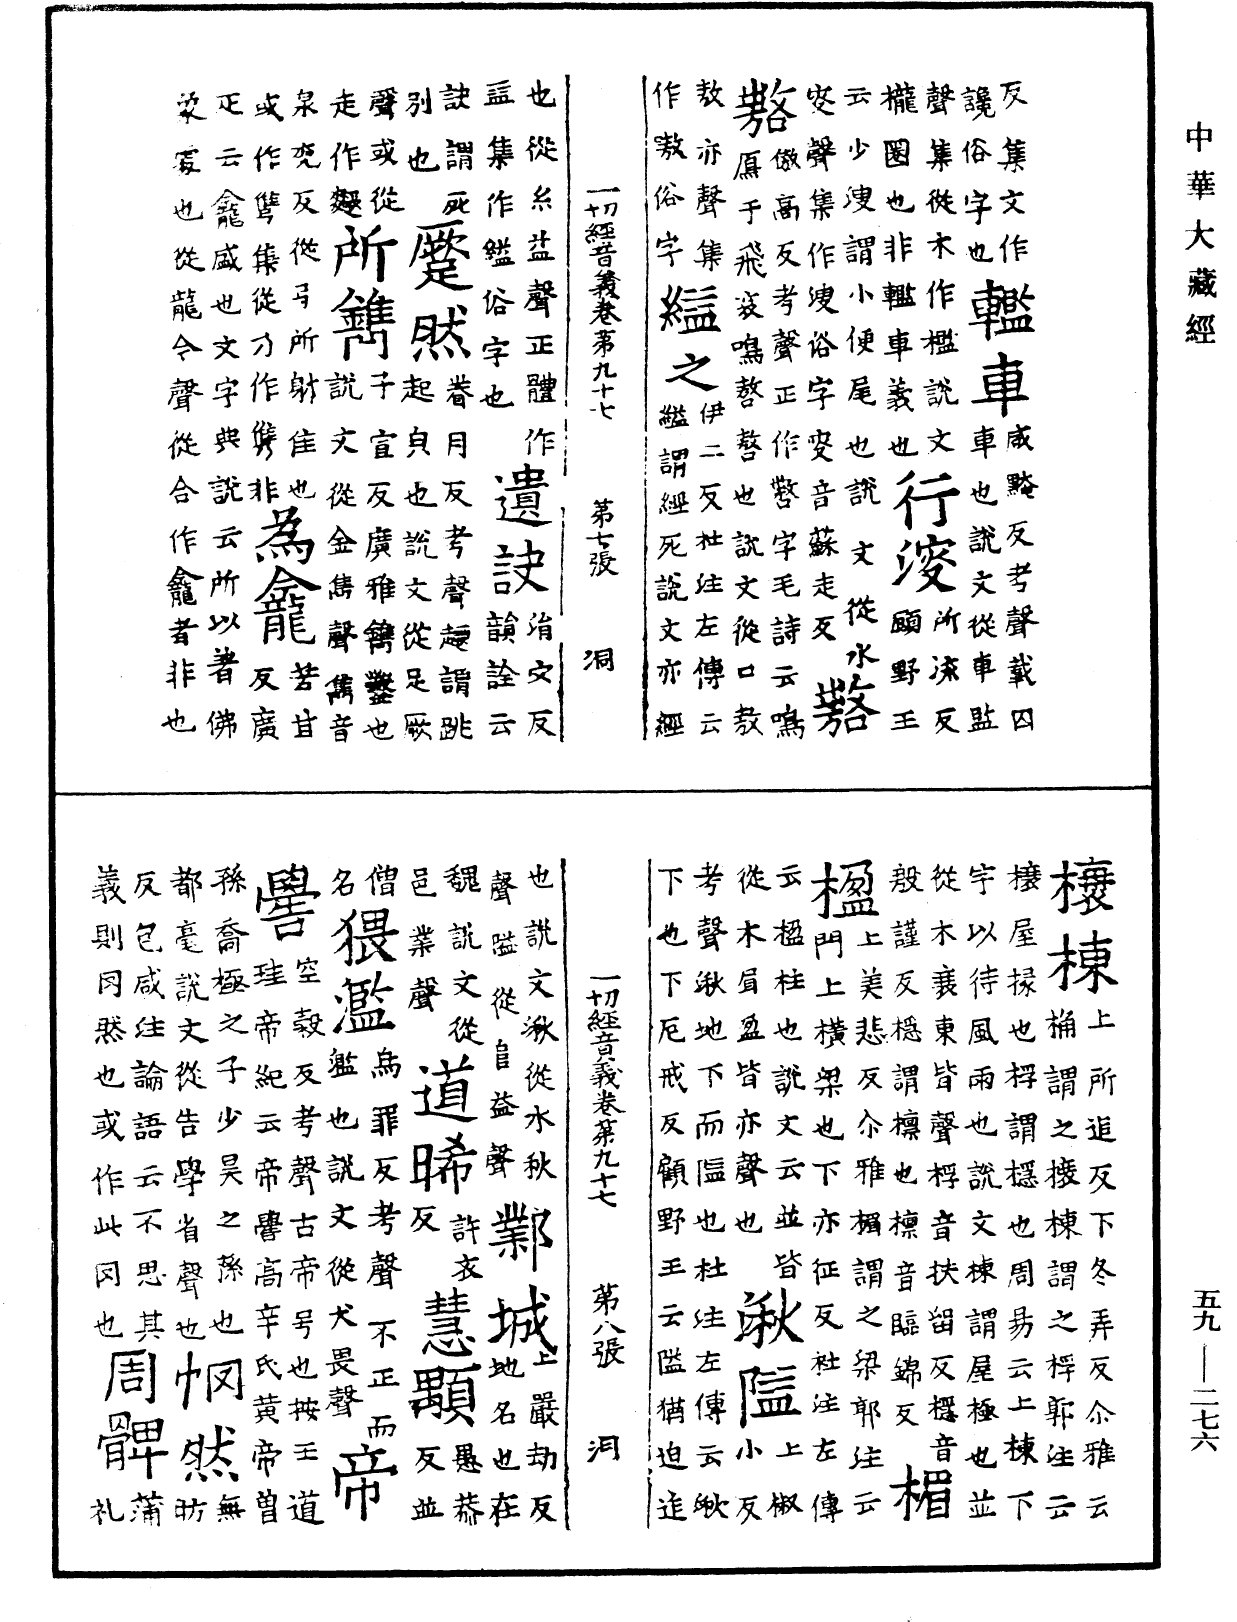 中華大藏經
反集文作轞車咸黤反考聲載囚
讒俗字也車也說文從車監
聲集從木作檻說文
櫳圈也非轞車義也行㴧所溲反顧野王
云少溲謂小便尾也說文從水
㝜聲集作溲俗字㝜音蘇走反謷
傲高反考聲正作謷字毛詩云鳴
謷鴈于飛哀鳴謷謷也說文從口敖
敖亦聲集
作嗷俗字縊之伊二反杜注左傳云縊謂經死說文亦經
一切經音義卷第九十七 第七張 洞
也從糸益聲正體作
㿽集作縊俗字也遺訣涓穴反韻詮云
訣謂死
別也蹷然眷月反考聲趩謂跳起皃也說文從足厥
聲或從
走作趰所鐫子宣反廣雅鐫鑿也說文從金雋聲雋音
泉兖反從弓所射隹也
或作㑺集從乃作㑺非為龕苦甘反廣
疋云龕盛也文字典說云所以著佛
㒵㝡也從龍今聲從合作龕者非也
榱棟上所追反下冬弄反尒雅云桷謂之榱棟謂之桴郭注云
榱屋椽也桴謂檼也周昜云上棟下
宇以待風雨也說文棟謂屋極也並
從木衰東皆聲桴音扶留反檼音
殷謹反檼謂檁也檁音臨錦反楣
上美悲反尒雅楣謂之梁郭注云
楹門上橫梁也下亦征反杜注左傳
云楹柱也說文云並皆
從木眉盈皆亦聲也湫隘上椒小反
考聲湫地下而隘也杜注左傳云湫
下也下厄戒反顧野王云隘猶迫迮
一切經音義卷第九十七 第八張 洞
也說文湫從水秋
聲隘從𨸏益聲鄴城上嚴劫反地名也在
魏說文從
邑業聲道晞許衣反慧顒愚恭反並
僧
名猥濫烏罪反考聲不正而濫也說文從犬畏聲帝
嚳空穀反考聲古帝号也按王道
珪帝紀云帝嚳高辛氏黃帝曾
孫喬極之子少昊之孫也
都毫說文從告學省聲也惘然昉無
反包咸注論語云不思其
義則罔然也或作此罔也周髀蒲礼
五九——二七六